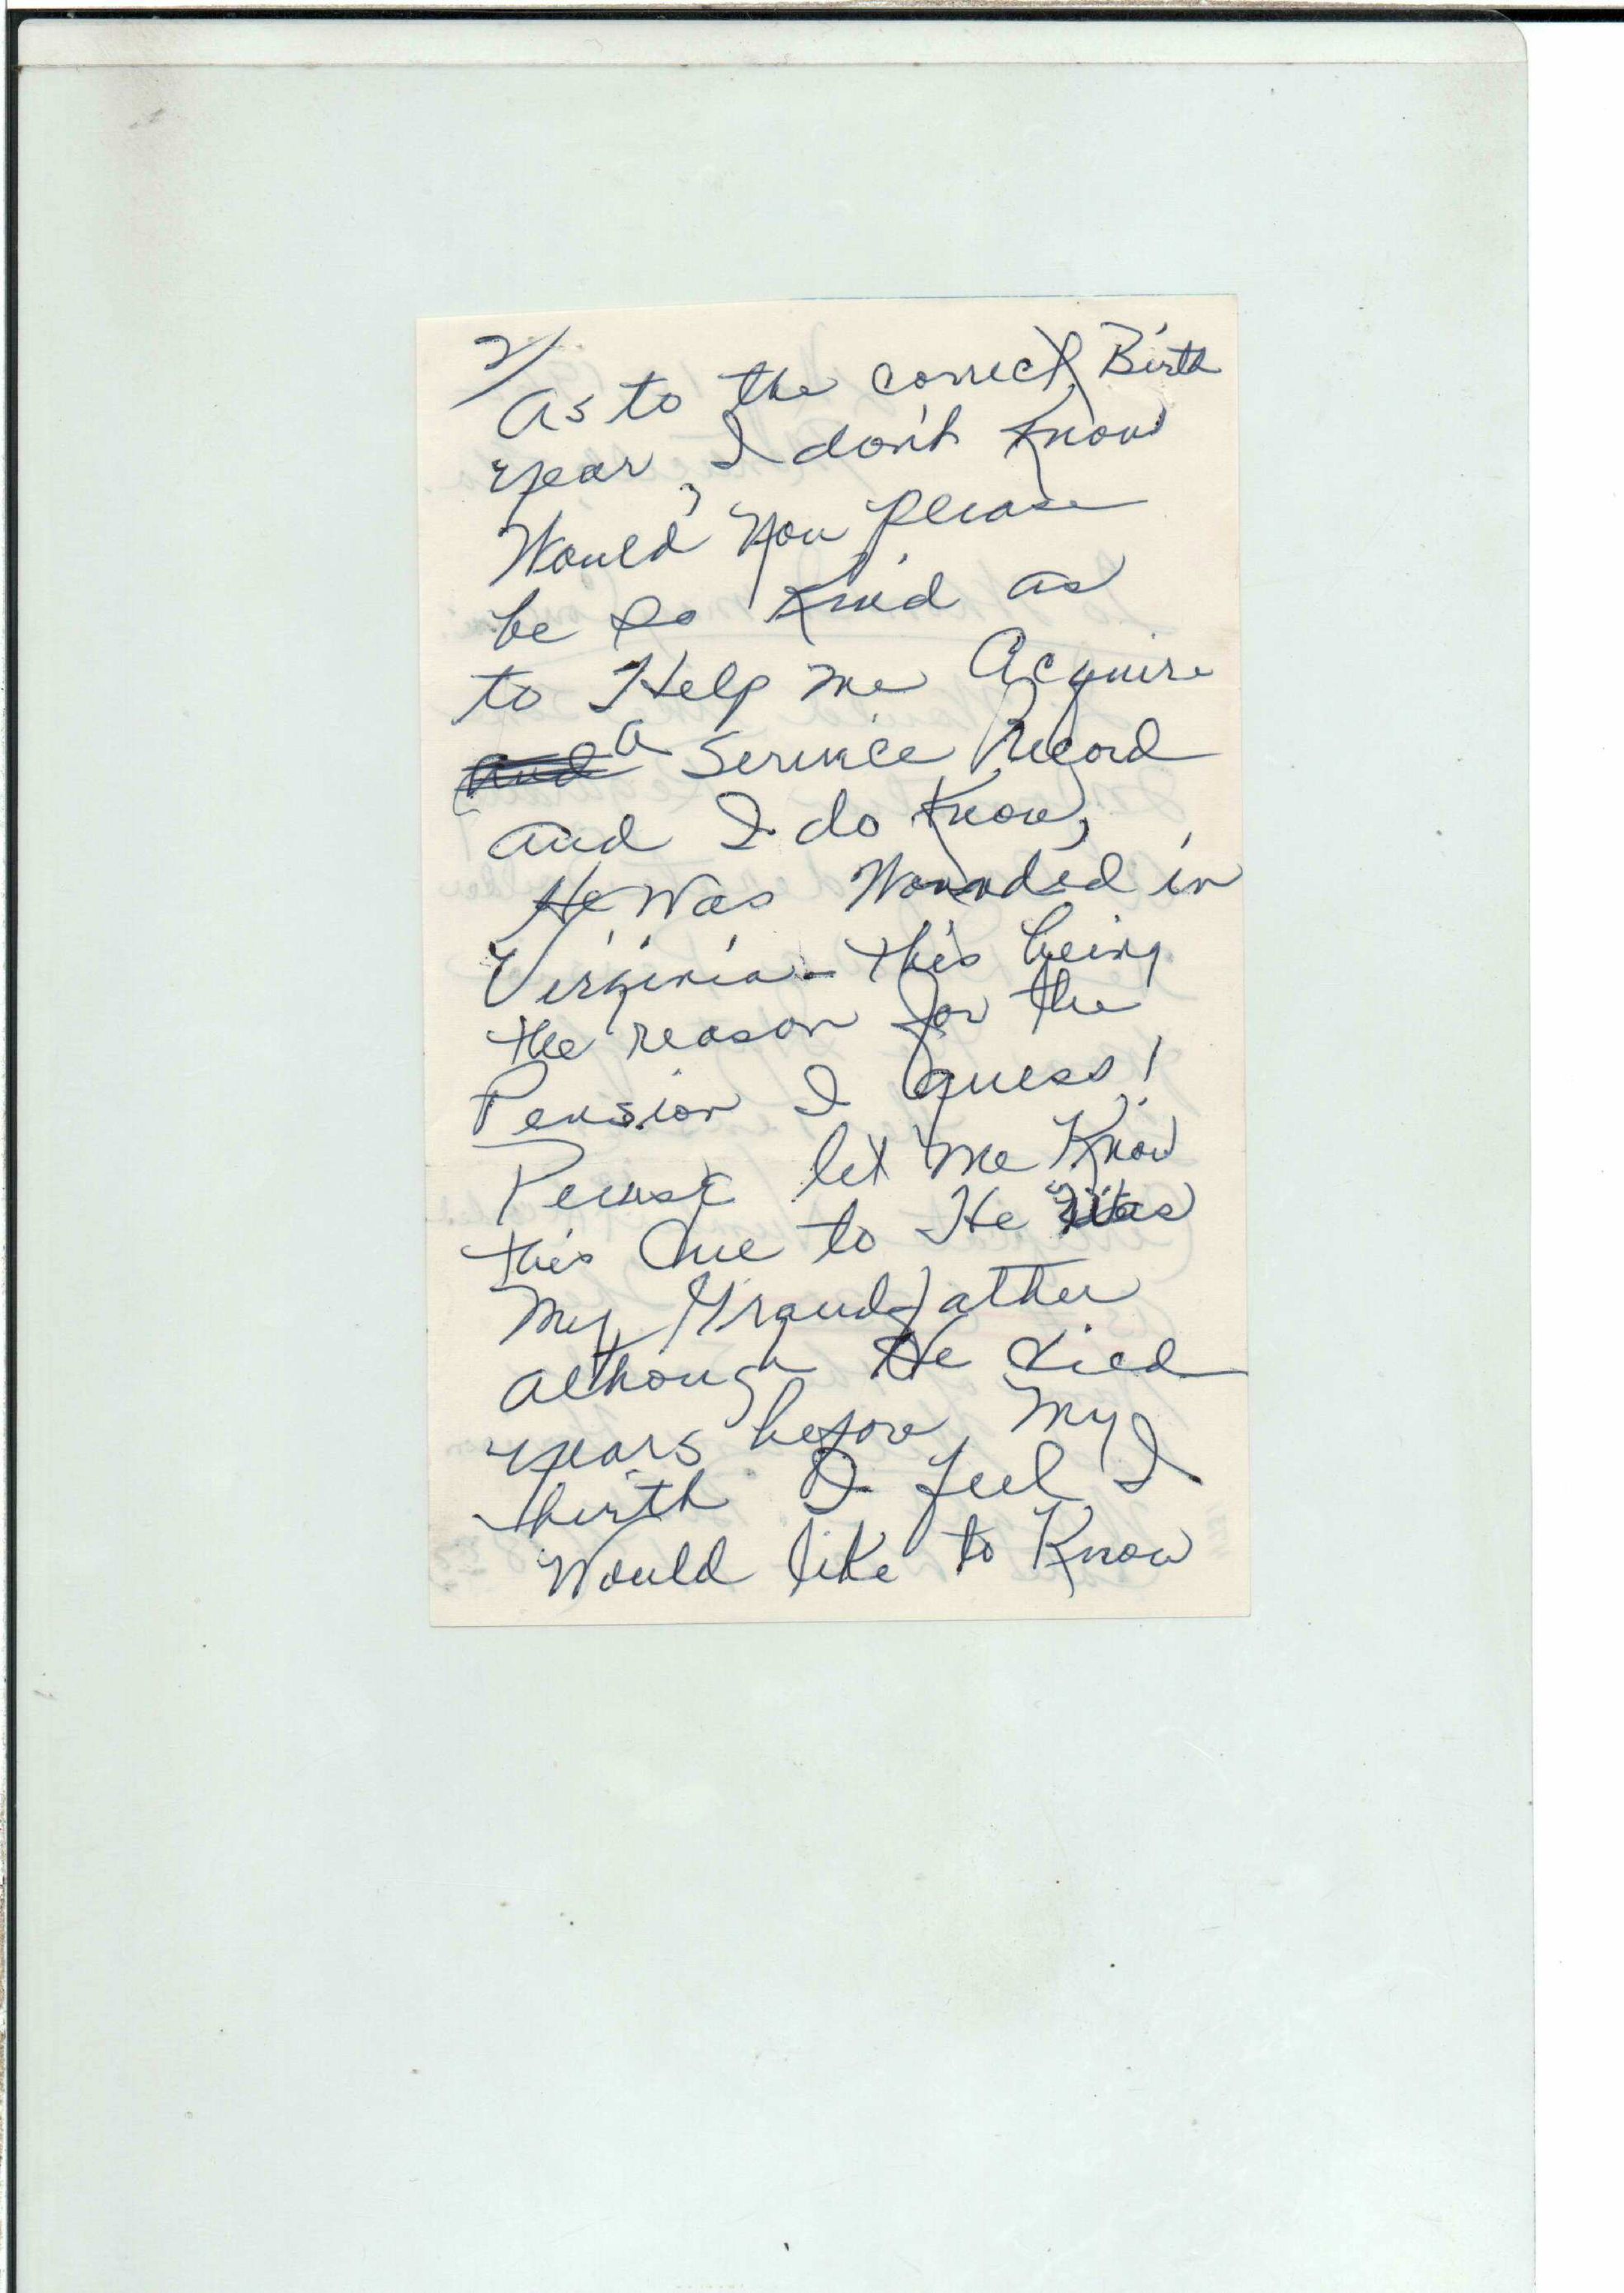 2/
As to the correct Birth
year, I don't know
Would you please
be so Kind as
to Help me Acquire
and a Service Record
and I do know,
He Was Wounded in
Virginia - this being
the reason for the
Pension I guess!
let me Know
this due to He was
My Grandfather
although He died
years before My
birth I feel I
Would like to Know